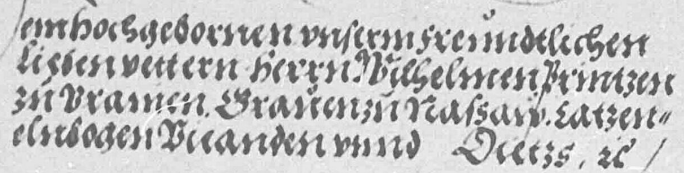 em hochgebornen vnserm freundtlichen
lieben vettern Herrn Wilhelmen Printzen
zu Vranien. Grauen zu Naßaw. Catzen-
elnbogen Vianden vnnd Dietzs. ꝛc /